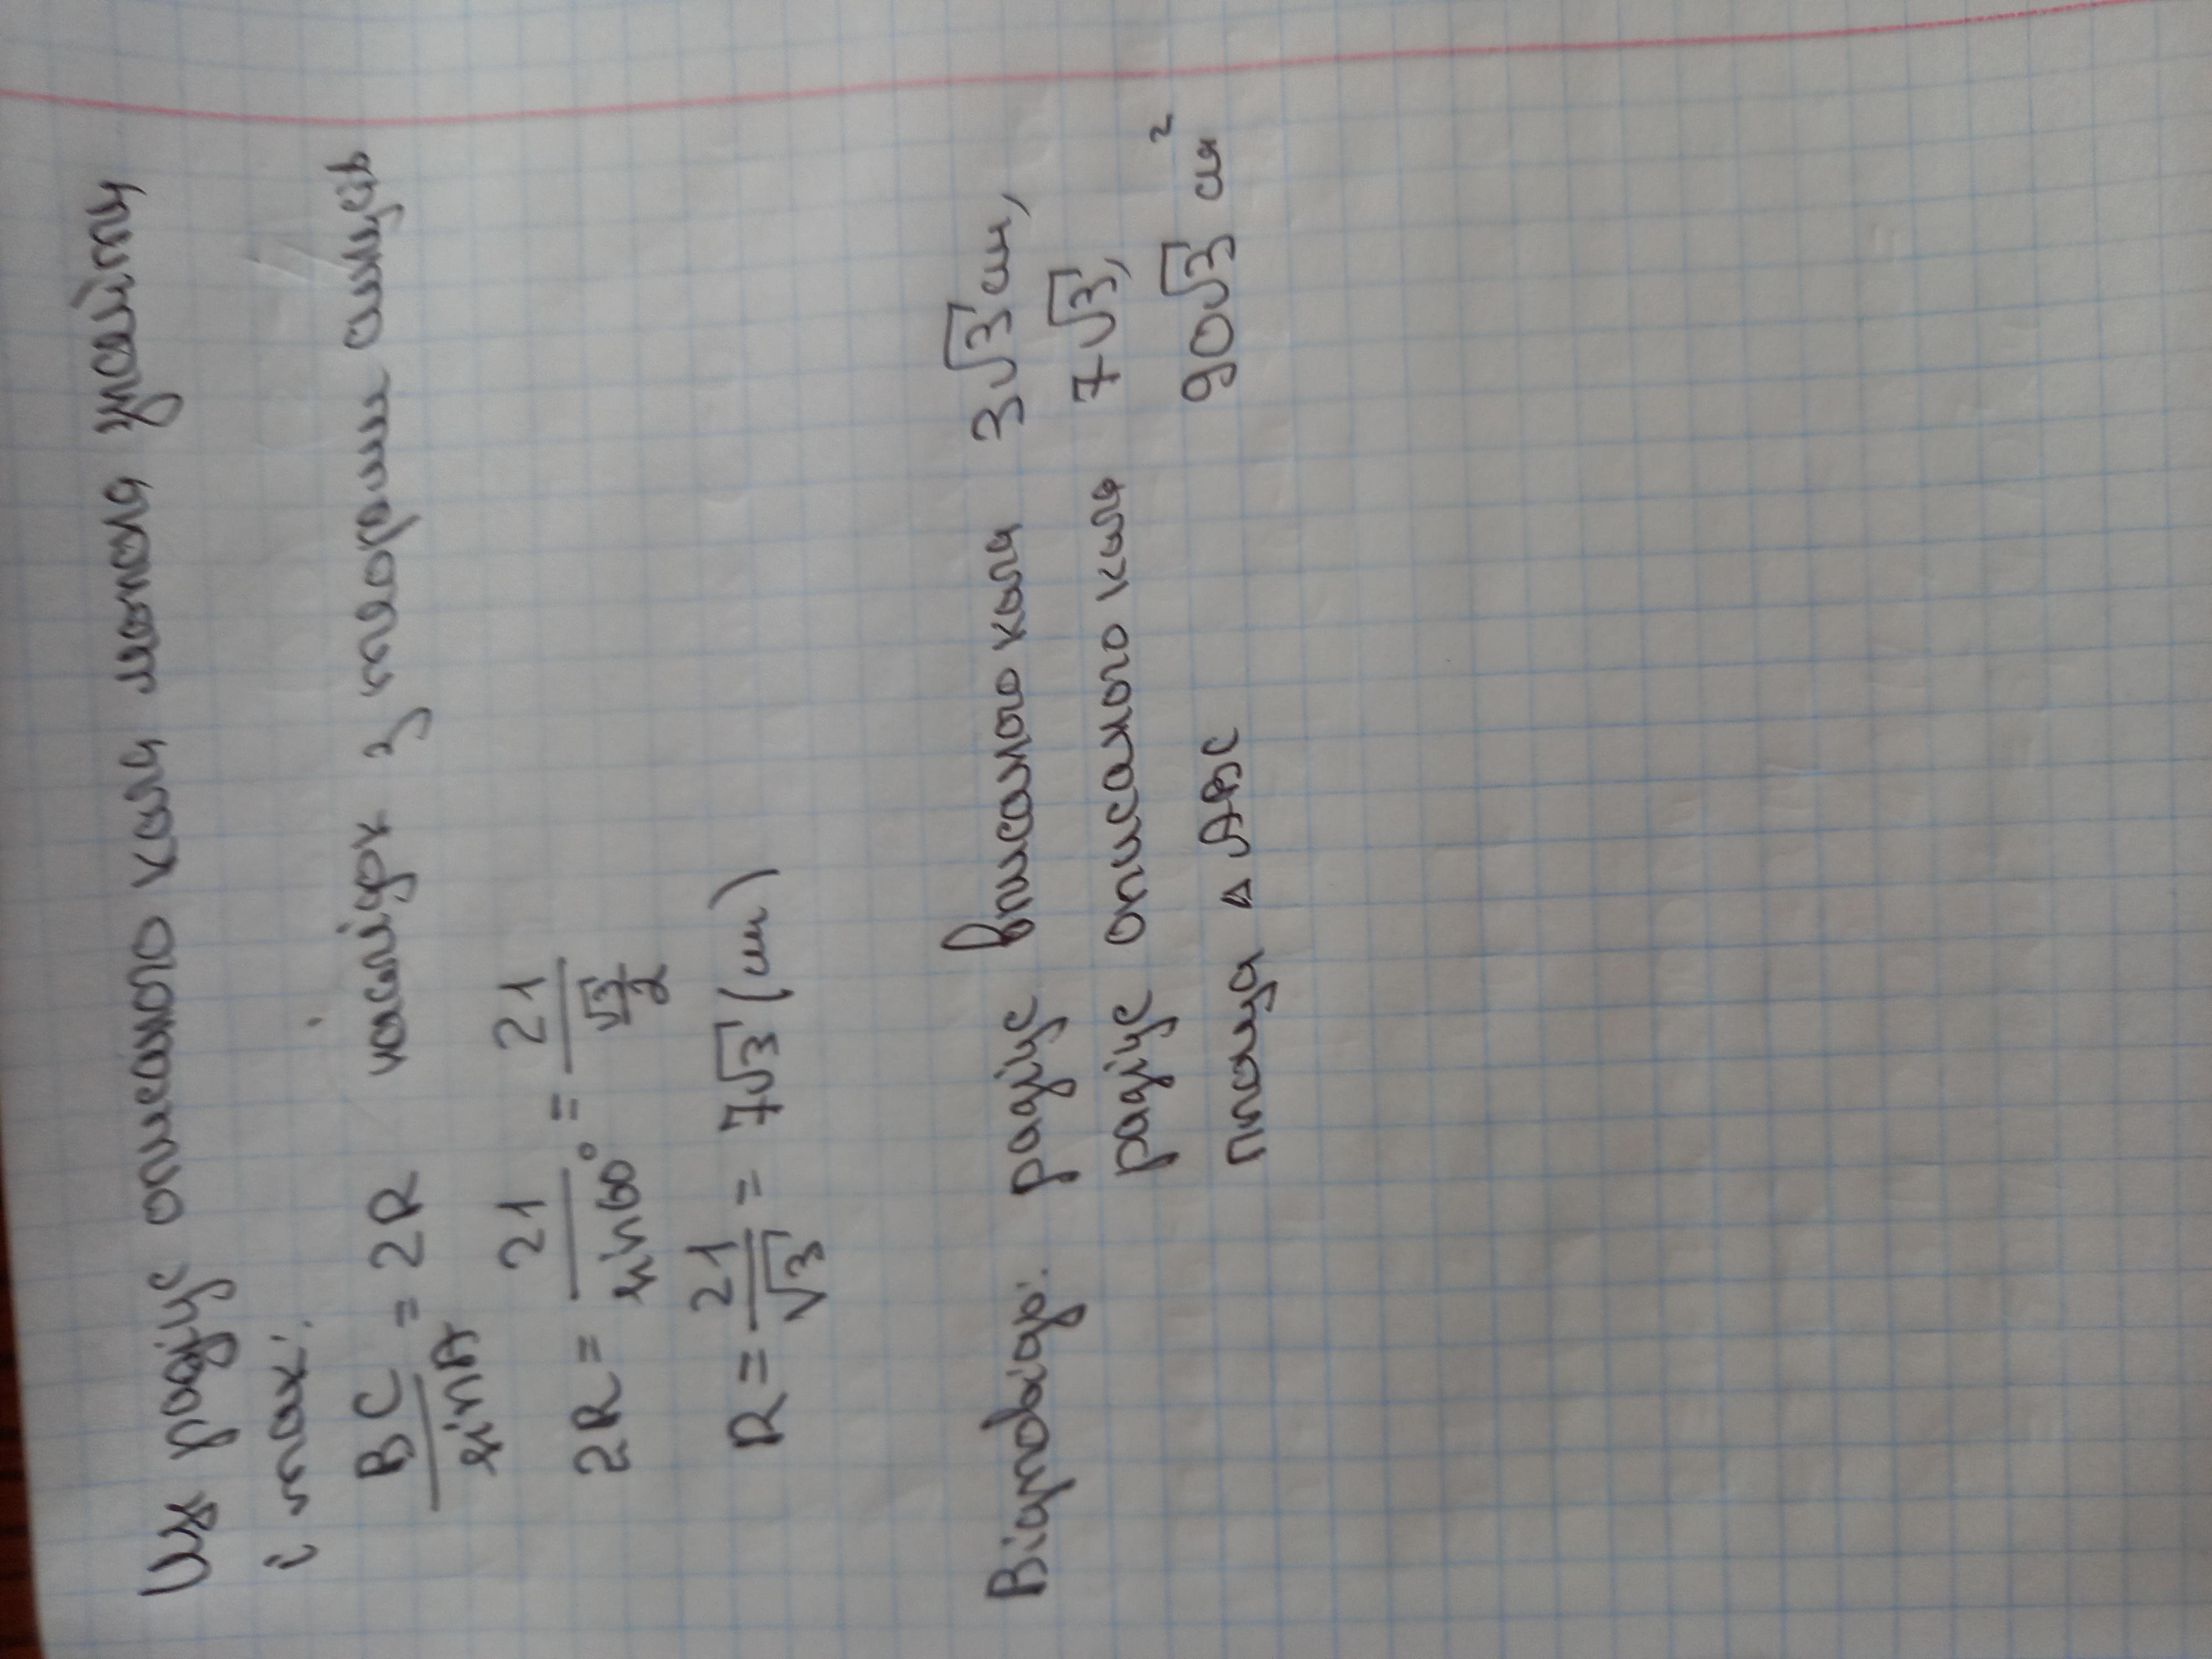 Цей радіус описаного кола можна знайти
і так:
BC/sinA = 2R наслідок з теореми синусів
2R = 21/sin60° = 21/(√3/2)
R = 21/√3 = 7√3 (см)
Відповідь: радіус вписаного кола 3√3 см,
радіус описаного кола 7√3,
площа △ ABC 90√3 см²